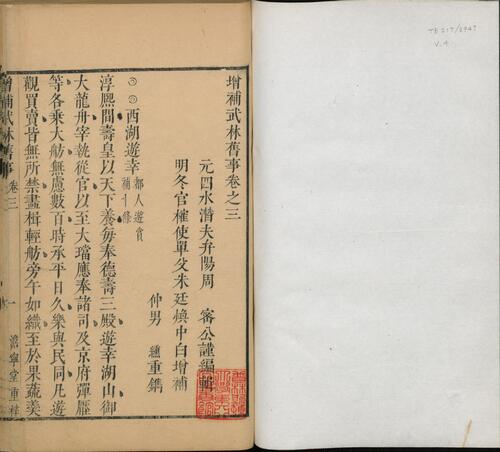 增補武林舊事卷之三
元四水潛夫弁陽周 密公謹編輯
明冬官榷使單父朱廷煥中白增補
仲男 纁重鐫
西湖遊幸 都人遊賞
補十條
淳熈間壽皇以天下養每奉德壽三殿遊幸湖山御
大龍舟宰執從官以至大璫應奉諸司及京府彈壓
等各乗大舫無慮數百時承平日久樂與民同凡遊
觀買賣皆無所禁畫楫輕舫旁午如織至於果蔬羮
增補武林舊事 卷三 一 澹寧堂重梓
V.4